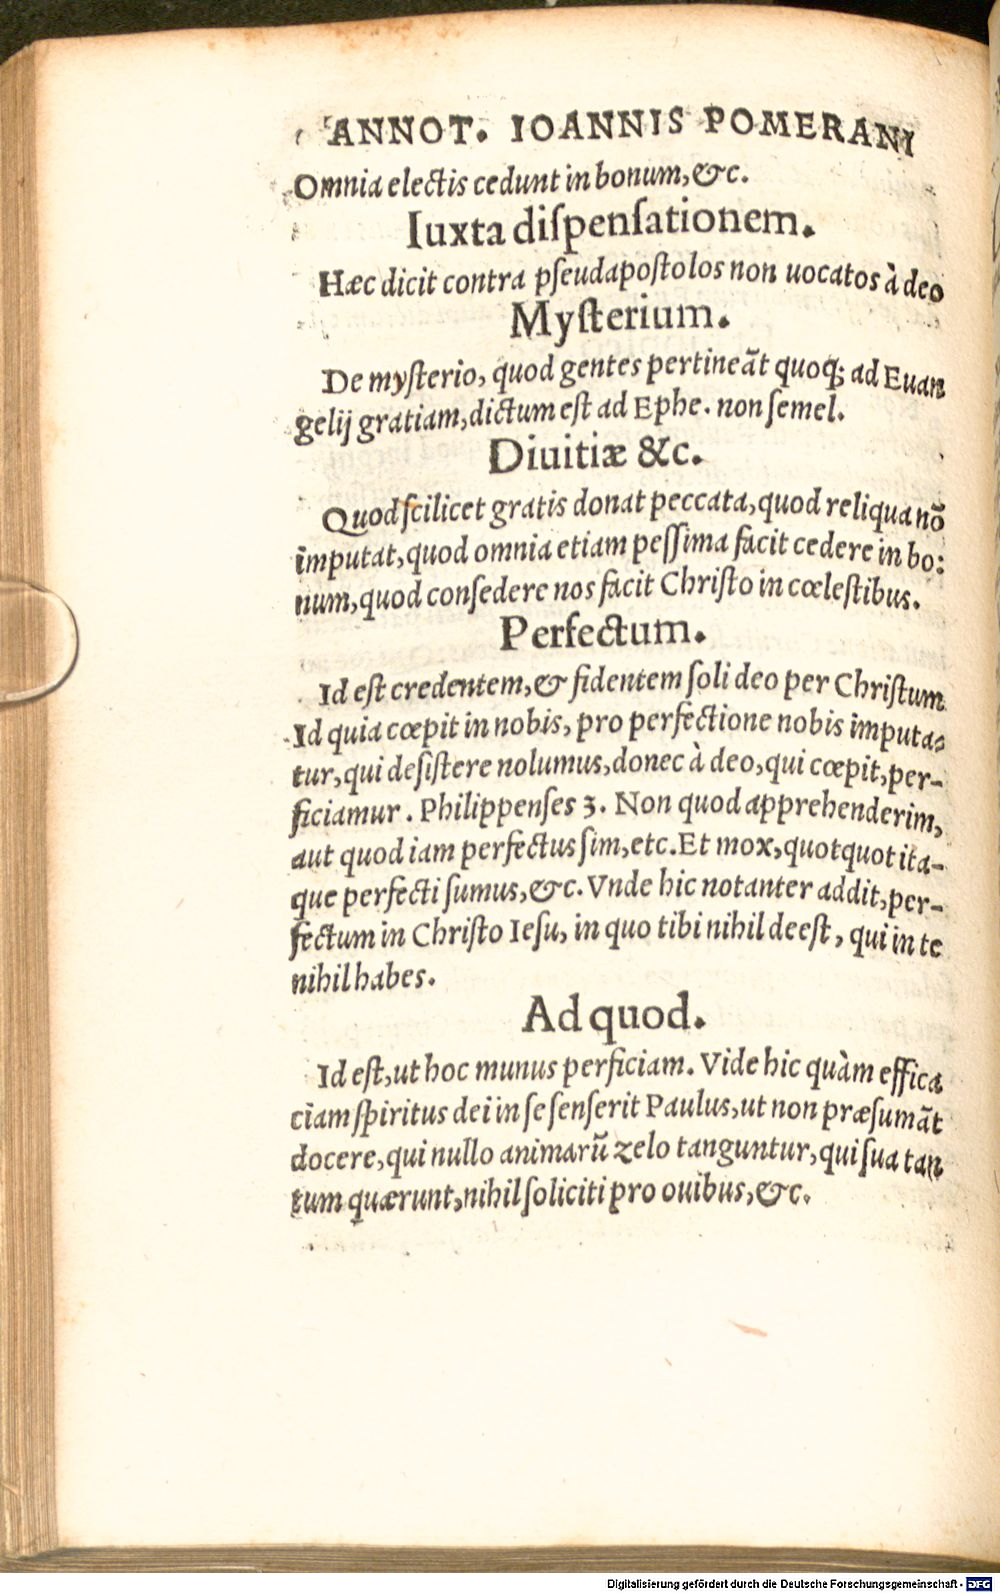 ANNOT. IOANNIS POMERANI
Omnia electis cedunt in bonum, &c.
Iuxta diſpenſationem.
Hæc dicit contra pſeudapoſtolos non uocatos à deo
Myſterium.
De myſterio, quod gentes pertineãt quoq; ad Euan
gelij gratiam, dictum eſt ad Ephe. non ſemel.
Diuitiæ &c.
Quod ſcilicet gratis donat peccata, quod reliqua nõ
imputat, quod omnia etiam peſſima facit cedere in bo:
num, quod conſedere nos facit Chriſto in cœleſtibus.
Perfectum.
Id eſt credentem, & fidentem ſoli deo per Chriſtum
Id quia cœpit in nobis, pro perfectione nobis imputa-
tur, qui deſiſtere nolumus, donec à deo, qui cœpit, per-
ficiamur. Philippenſes 3. Non quod apprehenderim,
aut quod iam perfectus ſim, etc. Et mox, quotquot ita-
que perfecti ſumus, &c. Vnde hic notanter addit, per-
fectum in Chriſto Ieſu, in quo tibi nihil deeſt, qui in te
nihil habes.
Ad quod.
Id eſt, ut hoc munus perficiam. Vide hic quàm effica
ciam ſpiritus dei in ſe ſenſerit Paulus, ut non præſumãt
docere, qui nullo animarũ zelo tanguntur, qui ſua tan
tum quærunt, nihil ſoliciti pro ouibus, &c.
Digitalisierung gefördert durch die Deutsche Forschungsgemeinschaft - DFG